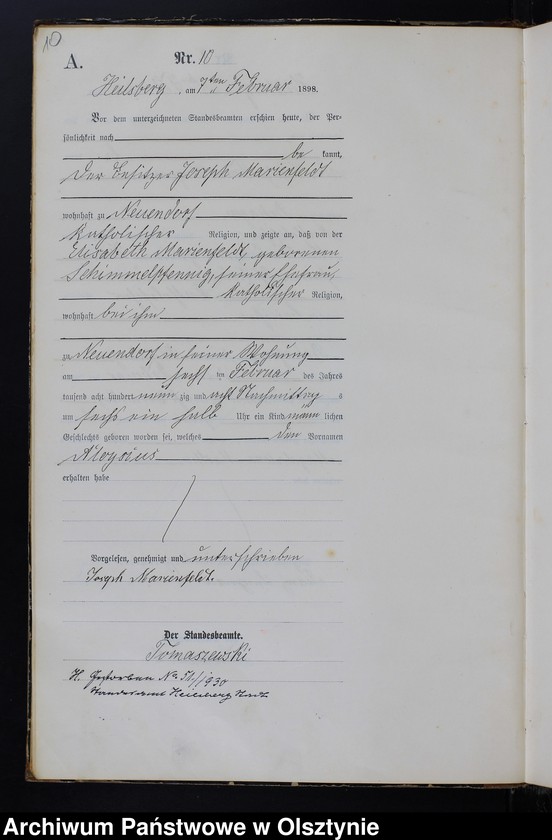 10
A. Nr. 10
Heilsberg, am 7ten Februar 1898.
Vor dem unterzeichneten Standesbeamten erschien heute, der Per-
sönlichkeit nach
be kannt,
der Besitzer Joseph Marienfeldt
wohnhaft zu Neuendorf
katholischer Religion, und zeigte an, daß von der
Elisabeth Marienfeldt, geborenen
Schimmelpfennig, seiner Ehefrau
katholischer Religion,
wohnhaft bei ihm
zu Neuendorf in seiner Wohnung
am sechs ten Februar des Jahres
tausend acht hundert neun zig und acht Nachmittag s
um sechs ein halb Uhr ein Kind männ lichen
Geschlechts geboren worden sei, welches den Vornamen
Aloysius
erhalten habe
Vorgelesen, genehmigt und unterschrieben
Joseph Marienfeldt.
Der Standesbeamte.
Tomaszewski
H. Gestorben No. 51/1930
Standesamt Heilsberg
Archiwum Państwowe w Olsztynie